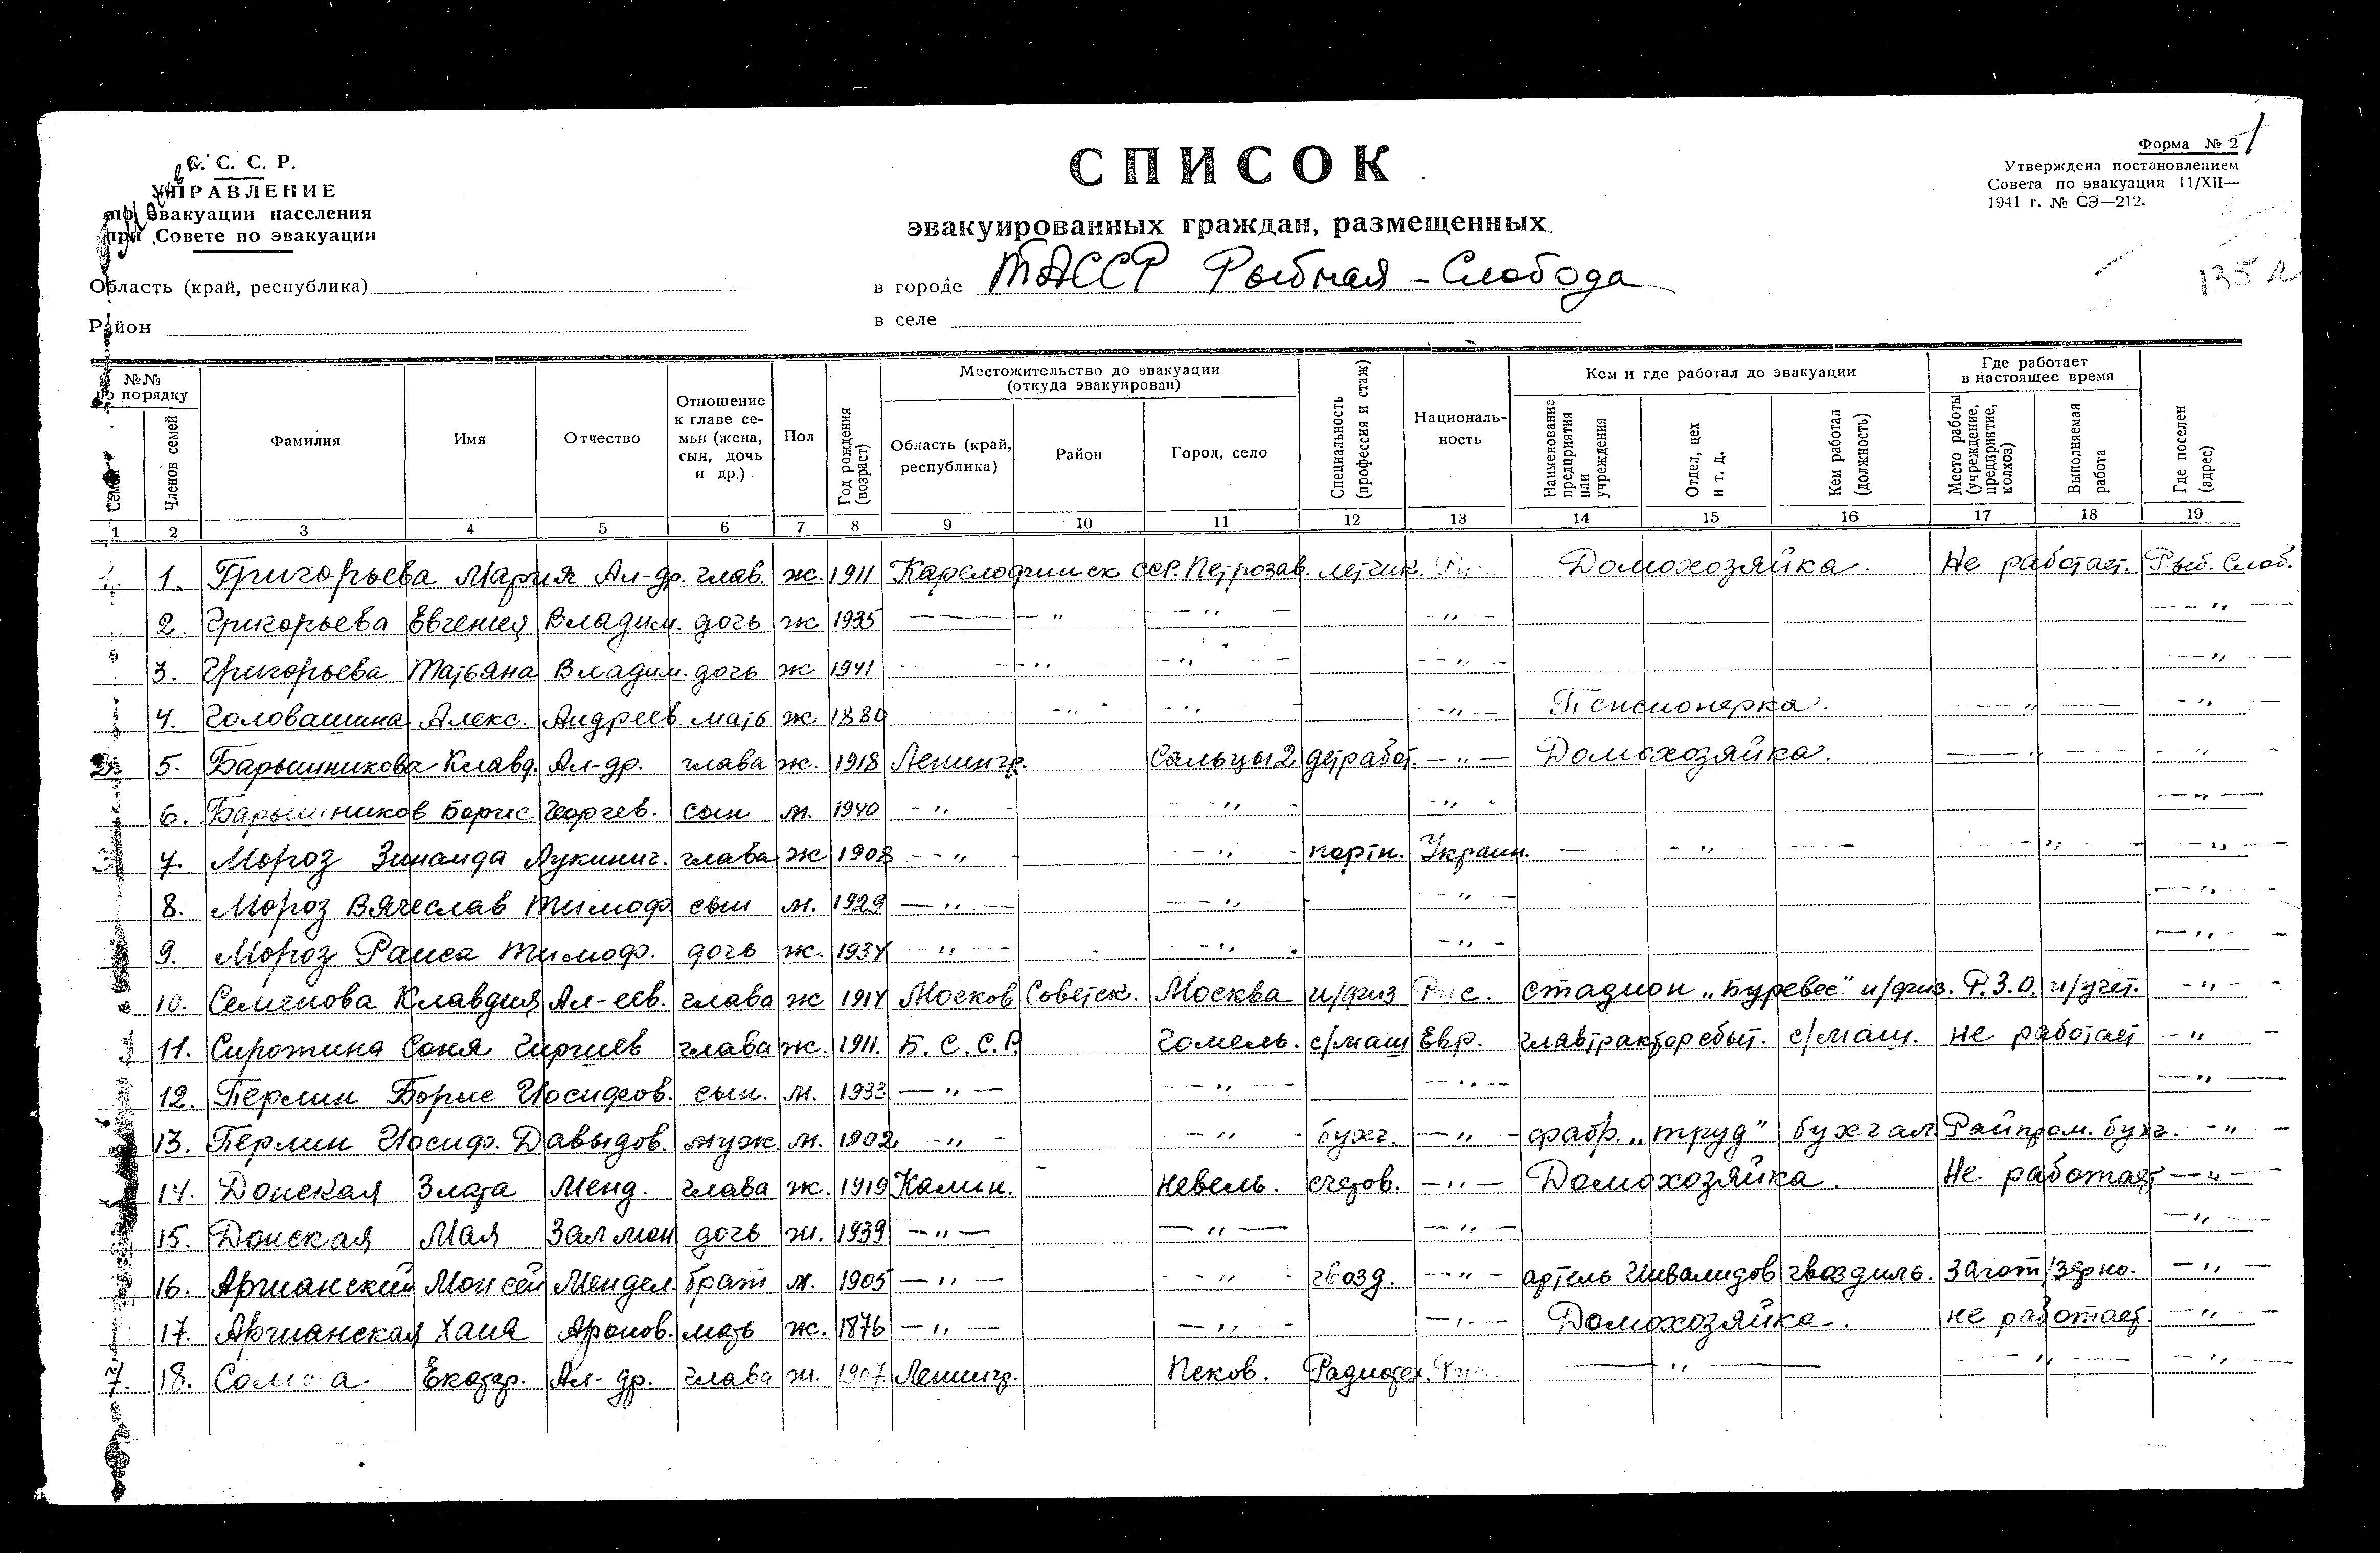 С. С. С. Р.
УПРАВЛЕНИЕ
по эвакуации населения
при Совете по эвакуации
СПИСОК
эвакуированных граждан, размещенных
Форма № 2
Утверждена постановлением
Совета по эвакуации 11/XII—
1941 г. № СЭ—212.
135 л
Область (край, республика)
в городе ТАССР Рыбная - Слобода
Район
в селе
№№ по порядку
Семей
Членов семей
Фамилия
Имя
Отчество
Отношение к главе семьи (жена, сын, дочь и др.)
Пол
Год рождения (возраст)
Местожительство до эвакуации (откуда эвакуирован)
Область (край, республика)
Район
Город, село
Специальность (профессия и стаж)
Националь-ность
Кем и где работал до эвакуации
Наименование предприятия или учреждения
Отдел, цех и т. д.
Кем работал (должность)
Где работает в настоящее время
Место работы (учреждение, предприятие, колхоз)
Выполняемая работа
Где поселен (адрес)
1 2 3 4 5 6 7 8 9 10 11 12 13 14 15 16 17 18 19
1. Григорьева Мария Ал-др. глав. ж. 1911 Карелофинск ССР. Петрозав. летчик. Домохозяйка. Не работает. Рыб. Слоб.
2. Григорьева Евгения Владим. дочь ж 1935 — " — " — — " — — " —
3. Григорьева Татьяна Владим. дочь ж 1941 - - " - " - - " - - " -
4. Головашина Алекс. Андреев. мать ж 1880 - " - - " - - " - Пенсионерка. — " — - " -
2. 5. Барышникова Клавд. Ал-др. глава ж. 1918 Ленингр. Сальцы 2 детработ. — " — Домохозяйка. — " — - " -
6. Барышников Борис Георгев. сын м. 1940 - " - - " - - " - — " —
3 7. Мороз Зинаида Лукинич. глава ж 1908 — " - - " - портн. Украин. — - " — - " - - " -
8. Мороз Вячеслав Тимоф. сын м. 1929 — " — — " — - " - — " -
9. Мороз Раиса Тимоф. дочь ж. 1934 — " - - " - - " - — " -
10. Семенова Клавдия Ал-еев. глава ж 1914 Москов Советск. Москва и/физ Рус. стадион „Буревес" и/физ. Р.З.О. и/учет. - " -
11. Сиротина Соня Гиршев глава ж. 1911. Б. С. С. Р. Гомель. с/маш Евр. Главтракторсбыт. с/маш. не работает - " -
12. Перлин Борис Иосифов. сын. м. 1933 — " — — " - — " — — " —
13. Перлин Иосиф. Давыдов. муж м. 1902 - " - - " - бухг. — " — фабр. „труд" бухгал. Райпром. бухг. - " -
14. Донская Злата Менд. глава ж. 1919 Калин. Невель. счетов. — " — Домохозяйка. Не работает — " —
15. Донская Мая Залман дочь ж. 1939 — " — — " — — " — — " —
16. Аргианский Моисей Мендел. брат м. 1905 — " — - " - гвозд. — " — артель Инвалидов гвоздиль. Загот/зерно. — " —
17. Аргианская Хана Аронов. мать ж. 1876 — " — — " - — " — Домохозяйка. не работает. - " -
7. 18. Екатер. Ал-др. глава ж. 1907 Ленингр. Псков. Радиотех. — " — — " — - " -